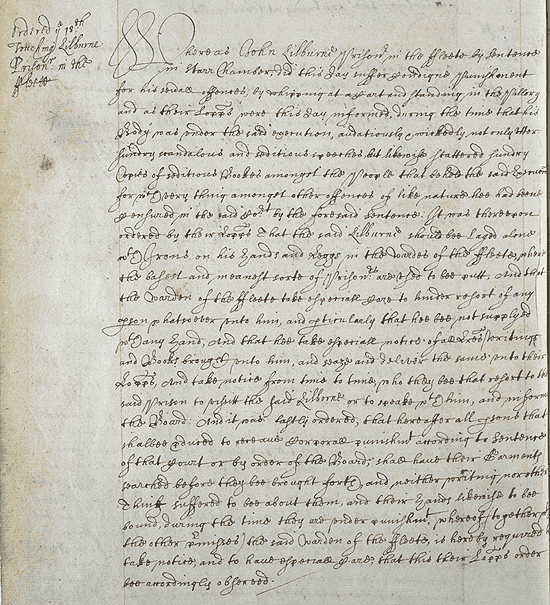 Ordered ye 18th
Touching Lilburne
Prisonr in the
Fleete
Whereas John Lilburne Prisonr in the Fleete by Sentence
in Starr Chamber, did this day suffer condigne Punishment
for his seuall offences, by whipping at a Cart and standing in the Pillory
and as their Lopps were this day informed, during the time that his
Body was under the said execution, audatiously & wickedly, not only utter
sundry scandalous and seditious speeches but likewise scattered sundry
Copies of seditious Bookes amongst the People that beheld the said Execution
for wch very thing amongst other offences of like nature hee had beene
Censured in the said Cort by the foresaid Sentence. It was therevpon
ordered by their Lopps That the said Lilburne should bee layed alone
wth Irons on his Hands and Leggs in the Wardes of the Fleete, where
the basest and meanest sorte of Prisonrs are used to bee putt, And that
the Warden of the Fleete take especiall Care to hinder resort of any
pson whatsoever unto him, and pticularly that hee bee not supplyed
wth any Hand, And that hee take especiall notice of all Lres writings
and Bookes brought unto him, and seaze and deliver the same unto their
Lopps, And take notice from time to time, who they bee that resort to the
said Prison to visitt the said Lilburne or to speake wth him, and informe
the Board. And it was lastly ordered, that hereafter all psons that
shallbe pduced to receaue Corporall punishmt according to Sentence
of that Court or by order of the Board, shall have their Garments
searched before they bee brought forth, and neither writing nor other
thing suffered to bee about them, and their Hands likewise to bee
bound, during the time they are under punishmt, whereof (together wth
the other pmisses) the said Warden of the Fleete, is hereby required to
take notice, and to have especiall Care, that this their Lopps order
bee accordingly observed.